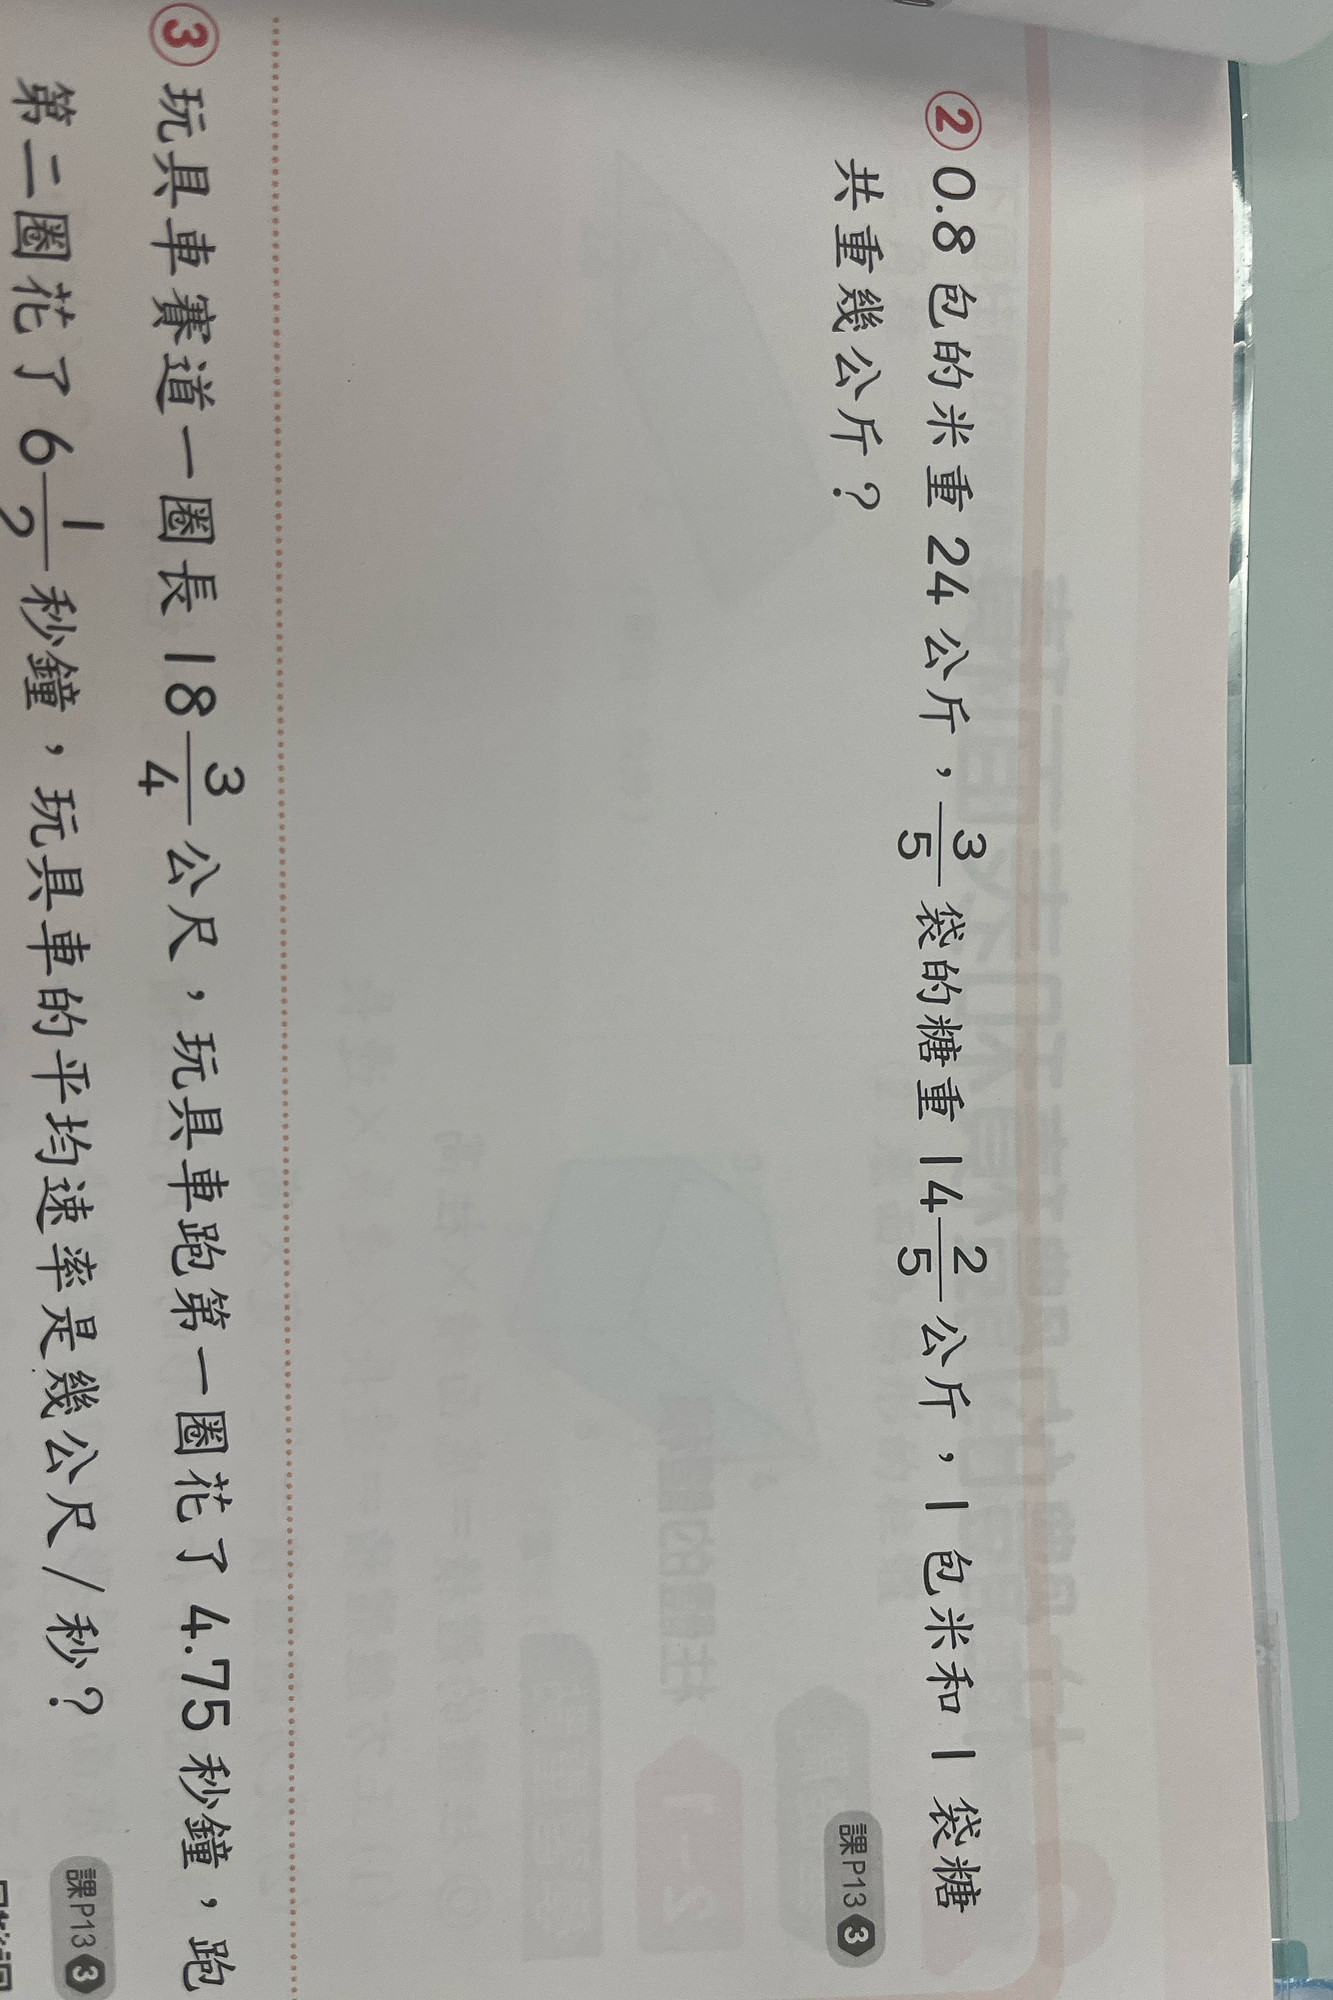 ② 0.8 包的米重 24 公斤，3/5 袋的糖重 14 2/5 公斤，1 包米和 1 袋糖
共重幾公斤？
課P13 ③
③ 玩具車賽道一圈長 18 3/4 公尺，玩具車跑第一圈花了 4.75 秒鐘，跑
第二圈花了 6 1/2 秒鐘，玩具車的平均速率是幾公尺/秒？
課P13 ③